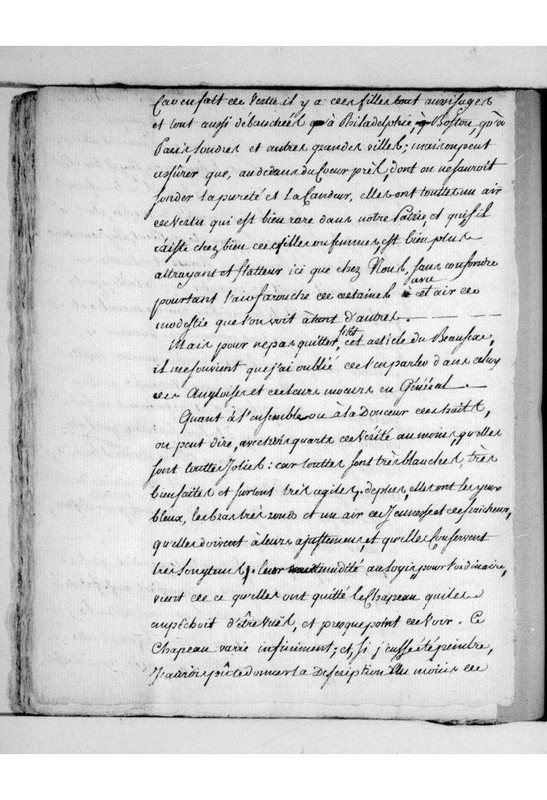 Car en fait de Vertu il y a des filles tout aussi sages
et tout aussi débauchées à Philadelphie, à Boston, qu'à
Paris, Londres et autres grandes villes; mais on peut
assûrer que, au dedans du Coeur près, dont on ne sauroit
sonder la pureté et la Candeur, elles ont touttes un air
de Vertu qui est bien rare dans notre Patrie, et qui, s'il
éxiste chez bien des filles ou femmes, est bien plus
attrayant et flatteur ici que chez Nous, sans confondre
pourtant l'air farouche de certaines avec cet air de
modestie que l'on voit à tant d'autres.
Mais pour ne pas quitter sitôt cet article du Beau Sexe,
il me souvient que j'ai oublié de t'en parler dans celuy
des Angloises et de leurs moeurs en Général.
Quant à l'ensemble ou à la Douceur des traits,
on peut dire, avec trois quarts de Vérité au moins, qu'elles
sont touttes Jolies: car touttes sont très blanches, très
bien faites et surtout très agiles; de plus, elles ont les yeux
bleux, les bras très ronds et un air de Jeunesse et de fraicheur,
qu'elles doivent à leurs ajustemens, et qu'elles Conservent
très longtems. leur au logis, pour l'ordinaire,
vient de ce qu'elles ont quitté le Chapeau qui les
empêchoit d'être vues, et presque point de voir. Ce
Chapeau varie infiniment; et, si j'eusse été peindre,
J'aurois pû te donner la Description au moins de